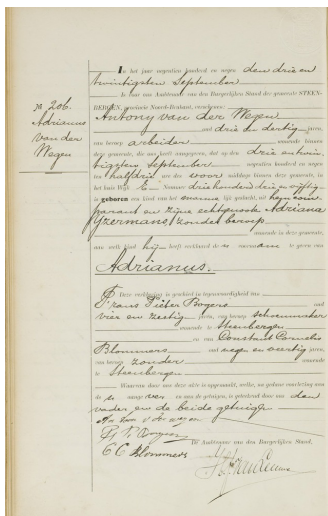 In het jaar negentien honderd en negen den drie en
twintigsten September
is voor ons Ambtenaar van den Burgerlijken Stand der gemeente STEEN-
BERGEN, provincie Noord-Brabant, verschenen:
No 206.
Adrianus
van der
Wegen
Antony van der Wegen
oud drie en dertig jaren,
van beroep arbeider wonende binnen
deze gemeente, die ons heeft aangegeven, dat op den drie en twin-
tigsten September negentien honderd en negen
ten half drie ure des voor middags binnen deze gemeente, in
het huis Wijk E Nummer driehonderd drie en vijftig
is geboren een kind van het manne lijk geslacht, uit hem com-
parant en zijne echtgenoote Adriana
IJzermans, zonder beroep
wonende in deze gemeente,
aan welk kind hij heeft verklaard de voornaam te geven van
Adrianus.
Deze verklaring is geschied in tegenwoordigheid van
Frans Pieter Bogers oud
vier en zestig jaren, van beroep schoenmaker
wonende te Steenbergen
en van Constant Cornelis
Blommers oud negen en veertig jaren,
van beroep zonder wonende
te Steenbergen
Waarvan door ons deze akte is opgemaakt, welke, na gedane voorlezing aan
de aangever en aan de getuigen, is geteekend door ons den
vader en de beide getuigen
C C Blommers
De Ambtenaar van den Burgerlijken Stand,